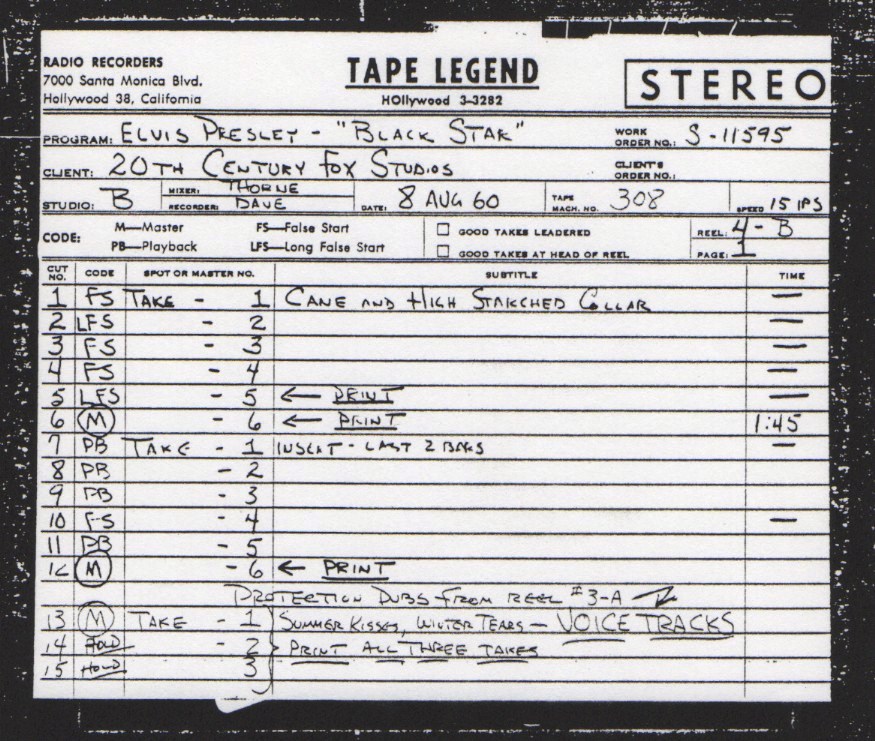 RADIO RECORDERS
7000 Santa Monica Blvd.
Hollywood 38, California
TAPE LEGEND
HOllywood 3-3282
STEREO
PROGRAM: ELVIS PRESLEY - "BLACK STAR"
WORK ORDER NO.: S-11595
CLIENT: 20TH CENTURY FOX STUDIOS
CLIENT'S ORDER NO.:
STUDIO: B
MIXER: THORNE
RECORDER: DAVE
DATE: 8 AUG 60
TAPE MACH. NO. 308
SPEED 15 IPS
CODE: M—Master FS—False Start
PB—Playback LFS—Long False Start
GOOD TAKES LEADERED
GOOD TAKES AT HEAD OF REEL
REEL: 4-B
PAGE: 1
CUT NO. CODE SPOT OR MASTER NO. SUBTITLE TIME
1 FS TAKE - 1 CANE AND HIGH STARCHED COLLAR —
2 LFS - 2 —
3 FS - 3 —
4 FS - 4 —
5 LFS - 5 ← PRINT —
6 M - 6 ← PRINT 1:45
7 PB TAKE - 1 INSERT - LAST 2 BARS —
8 PB - 2
9 PB - 3
10 FS - 4 —
11 PB - 5
12 M - 6 ← PRINT
PROTECTION DUBS FROM REEL #3-A
13 M TAKE - 1 SUMMER KISSES, WINTER TEARS - VOICE TRACKS
14 HOLD - 2 PRINT ALL THREE TAKES
15 HOLD 3